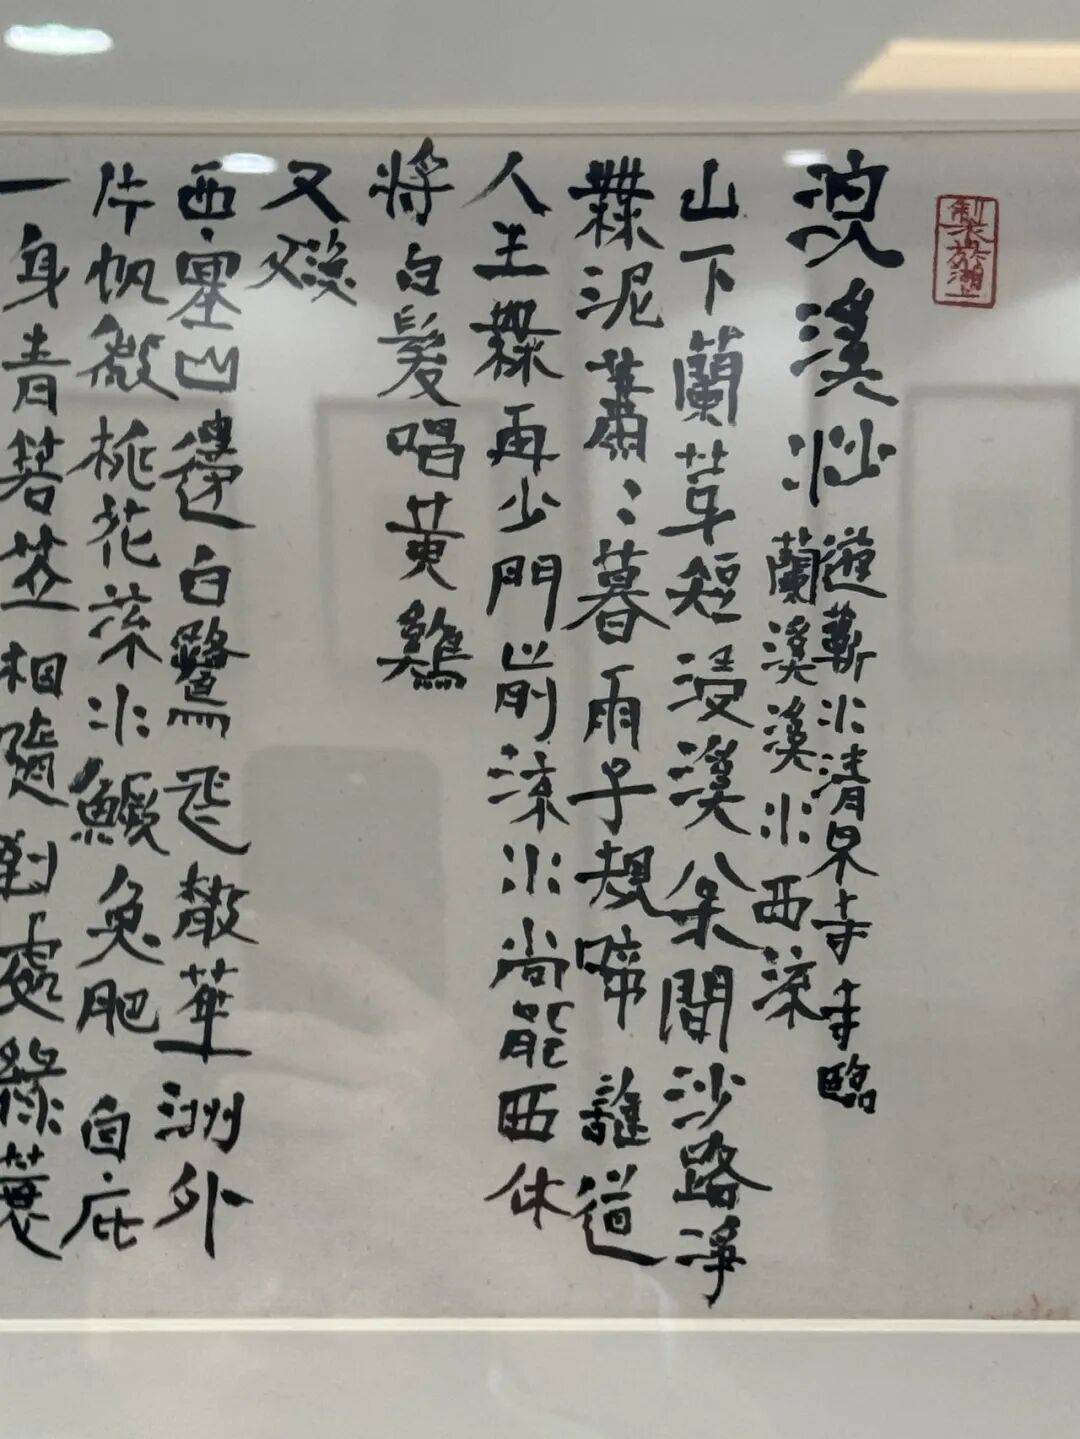 製於湖上
浣溪沙 遊蘄水清泉寺寺臨
蘭溪溪水西流
山下蘭芽短浸溪松間沙路淨
無泥蕭〻暮雨子規啼 誰道
人生無再少門前流水尚能西休
將白髮唱黃雞
又
西塞山邊白鷺飛散華洲外
片帆微桃花流水鱖魚肥 自庇
一身青箬笠相隨到處綠蓑